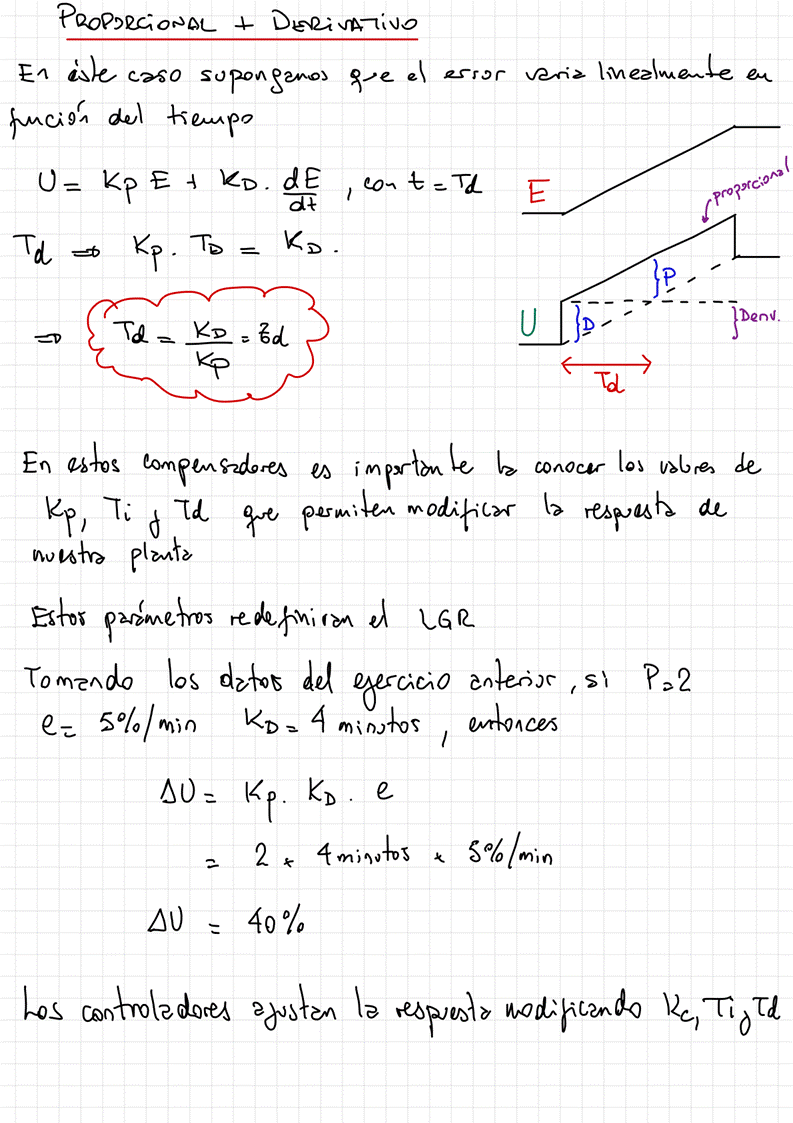 PROPORCIONAL + DERIVATIVO
En éste caso supongamos que el error varia linealmente en
función del tiempo
U = Kp E + KD . dE/dt , con t = Td
Td ⇒ Kp . TD = KD .
⇒ Td = KD/Kp = Zd
E
proporcional
P
U
D
Deriv.
Td
En estos compensadores es importante la conocer los valores de
Kp, Ti y Td que permiten modificar la respuesta de
nuestra planta
Estos parámetros redefiniran el LGR
Tomando los datos del ejercicio anterior, si P=2
e= 5%/min KD = 4 minutos, entonces
ΔU = Kp . KD . e
= 2 * 4 minutos * 5%/min
ΔU = 40%
Los controladores ajustan la respuesta modificando Kc, Ti y Td